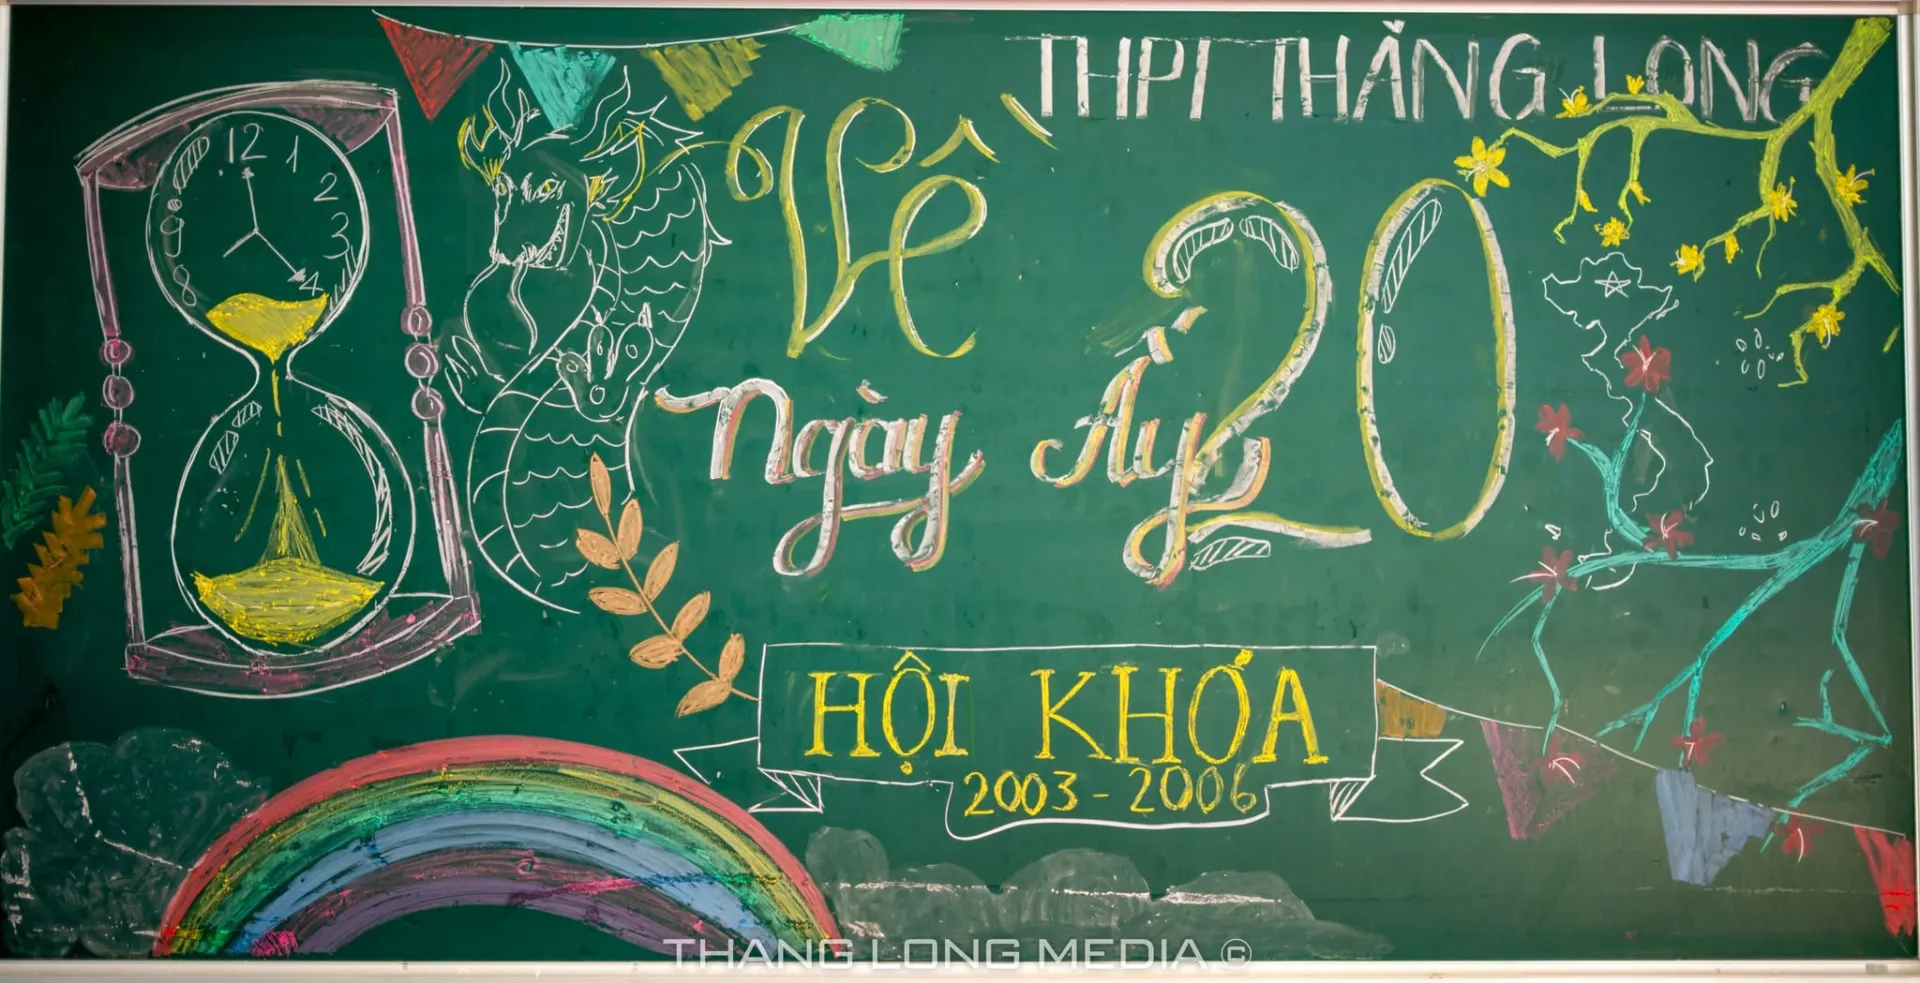 THPT THĂNG LONG
Về
Ngày Ấy
20
12
1
2
3
4
9
8
HỘI KHÓA
2003 - 2006
THANG LONG MEDIA ©